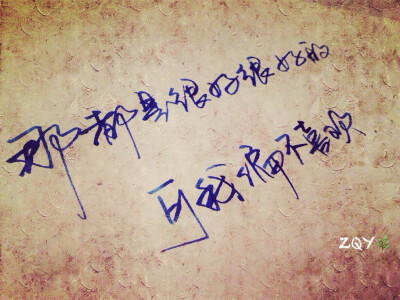 那都是很好很好的
可我偏不喜欢
ZQY